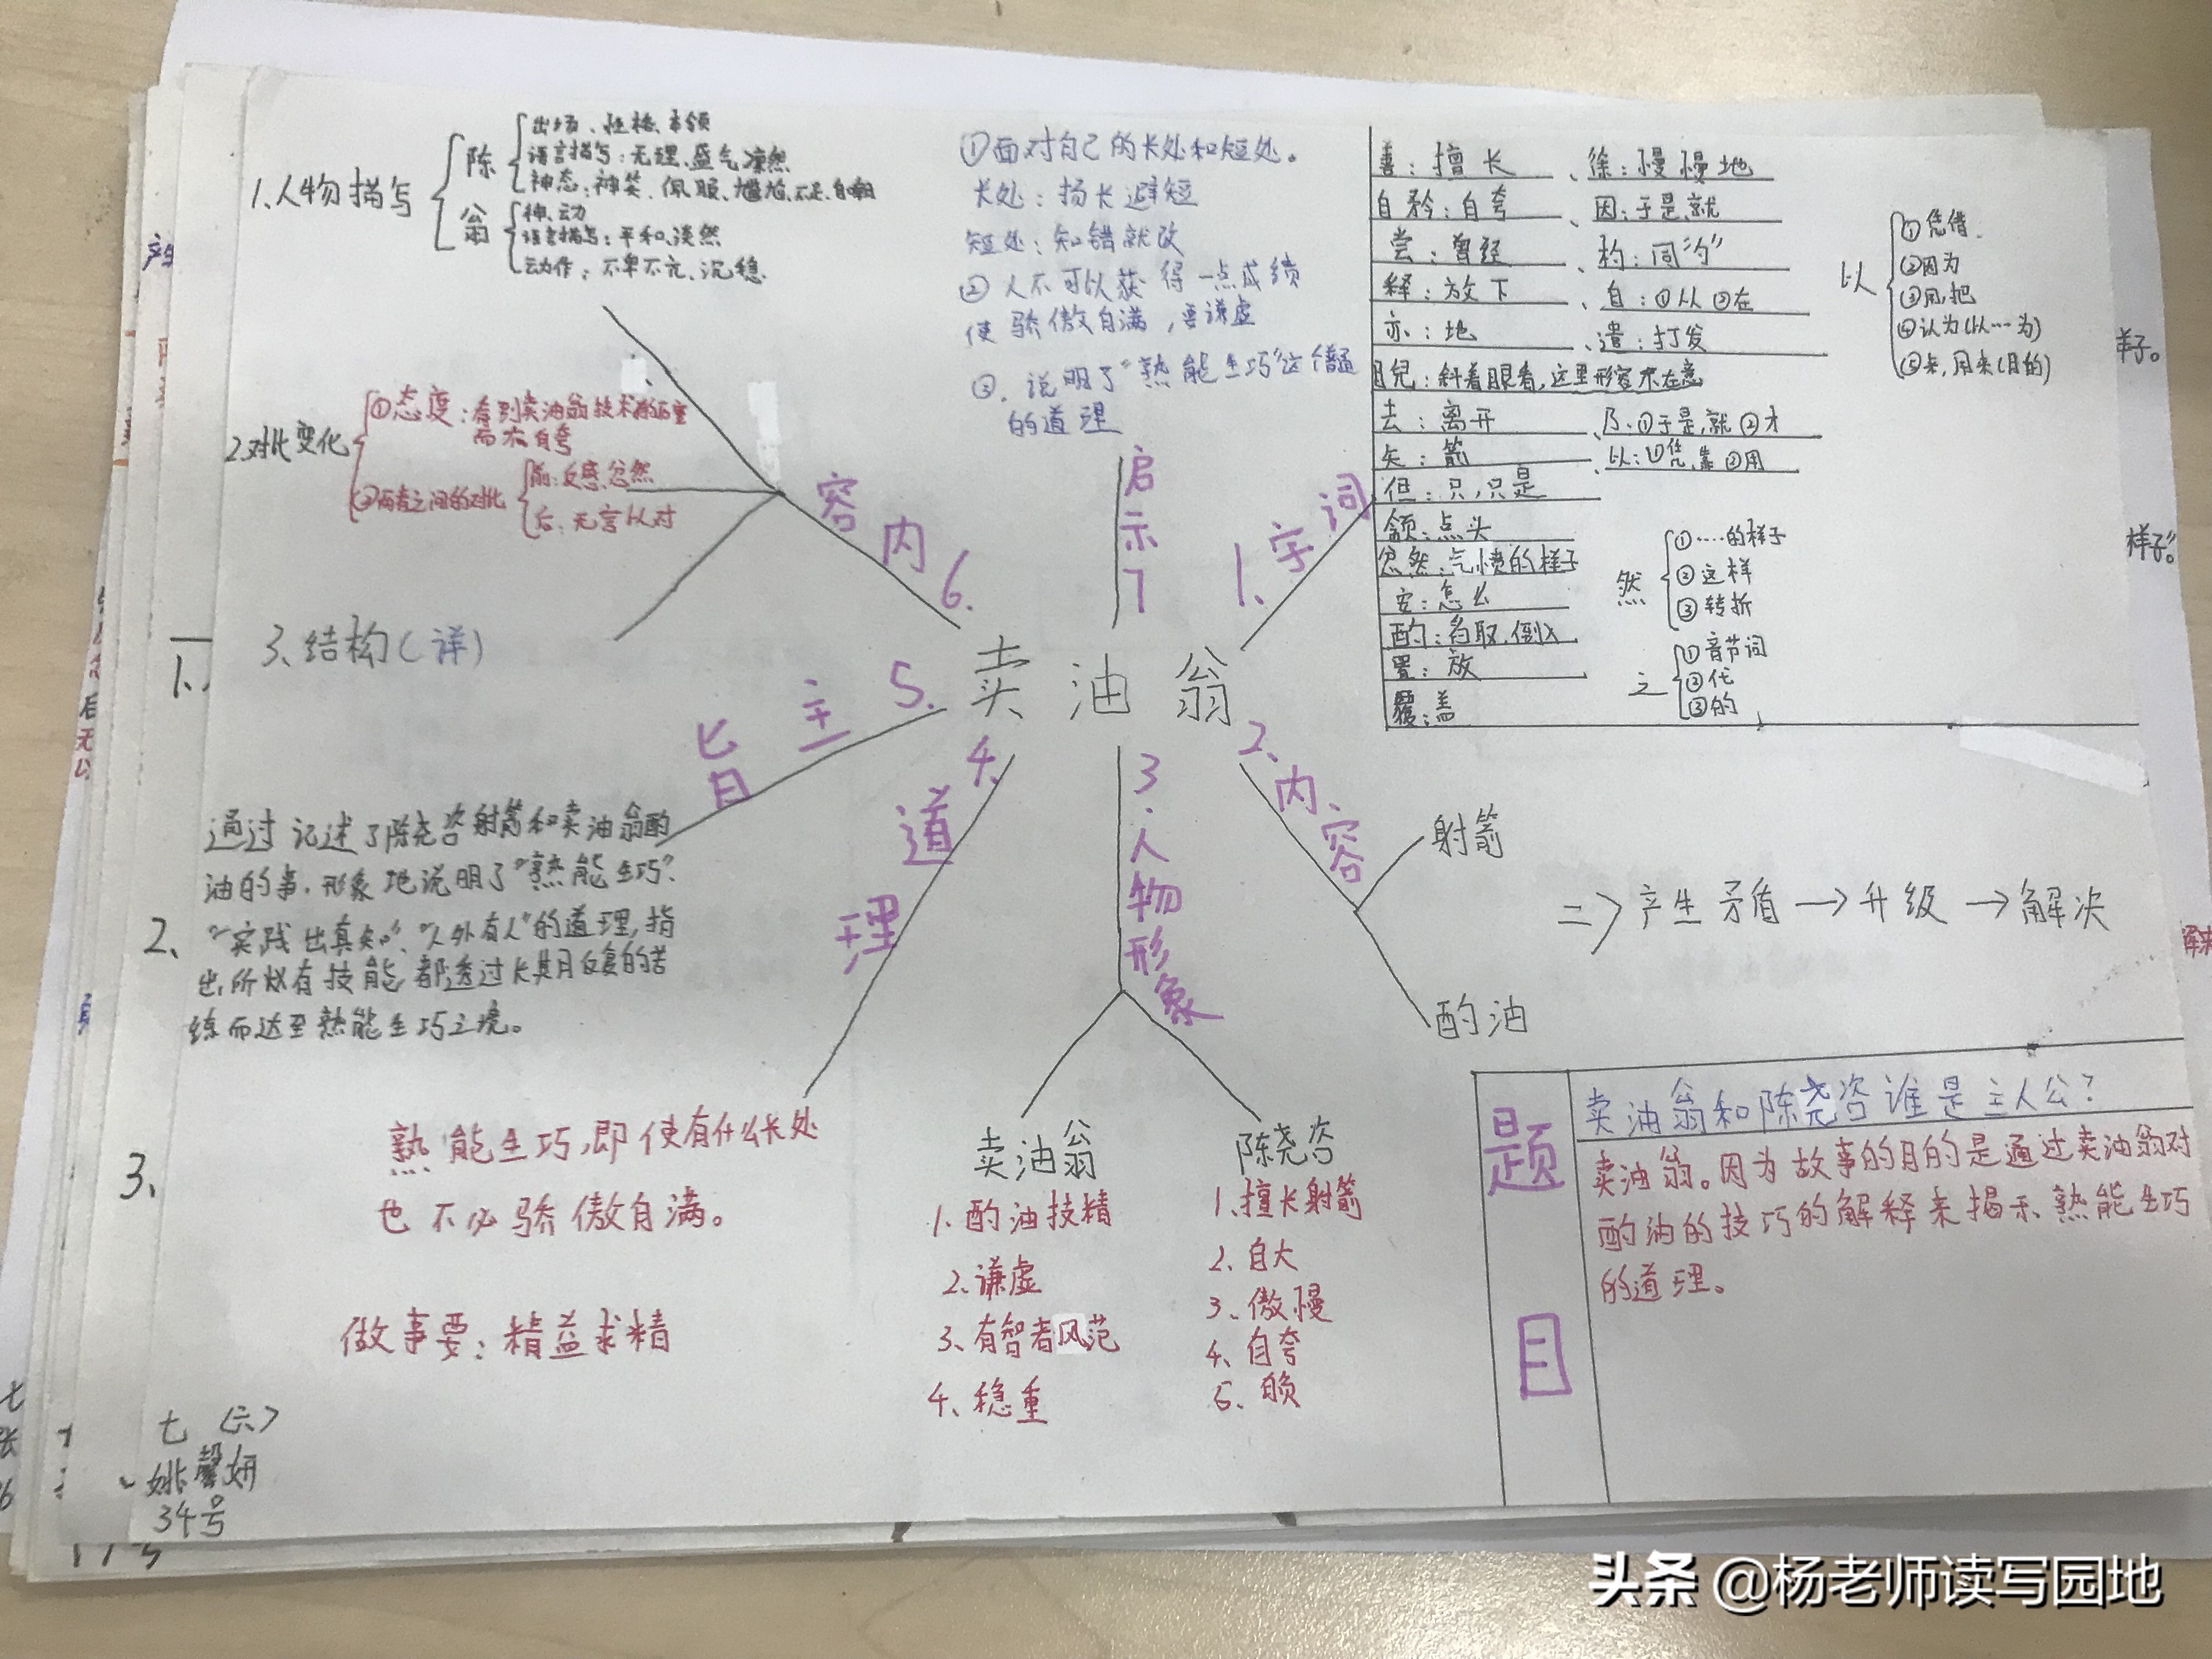 卖油翁
1.字词
善:擅长、徐:慢慢地
自矜:自夸、因:于是,就
尝:曾经、杓:同"勺"
释:放下、自:①从②在
亦:地、遣:打发
睨:斜着眼看,这里形容不在意
去:离开、乃:①于是,就②才
矢:箭、以:①凭,靠②用
但:只,只是
颔:点头
忿然:气愤的样子
安:怎么
酌:舀取,倒入
置:放
覆:盖
以
①凭借
②因为
③用,把
④认为(以…为)
⑤来,用来(目的)
然
①……的样子
②这样
③转折
之
①音节词
②代
③的
2.内容
射箭
酌油
=>产生矛盾→升级→解决
3.人物形象
卖油翁
1.酌油技精
2.谦虚
3.有智者风范
4.稳重
陈尧咨
1.擅长射箭
2.自大
3.傲慢
4.自夸
5.自负
4.道理
熟能生巧,即使有什么长处
也不必骄傲自满。
做事要:精益求精
5.主旨
通过记述了陈尧咨射箭和卖油翁酌
油的事,形象地说明了"熟能生巧",
"实践出真知"、"人外有人"的道理,指
出所有技能都透过长期反复的苦
练而达至熟能生巧之境。
6.内容
1.人物描写
陈
出场、性格、本领
语言描写:无理、盛气凛然
神态:神笑、佩服、尴尬
翁
神、动
语言描写:平和、淡然
动作:不卑不亢、沉稳
2.对比变化
①态度:看到卖油翁技术
而不自夸
②两者之间的对比
前:反感、忿然
后:无言以对
3.结构(详)
启示7
①面对自己的长处和短处。
长处:扬长避短
短处:知错就改
②人不可以获得一点成绩
使骄傲自满,要谦虚
③.说明了"熟能生巧"这个普通
的道理
题目
卖油翁和陈尧咨谁是主人公?
卖油翁。因为故事的目的是通过卖油翁对
酌油的技巧的解释来揭示、熟能生巧
的道理。
七(六)
姚馨妍
34号
1、
2、
3、
样子。
样子。
头条 @杨老师读写园地